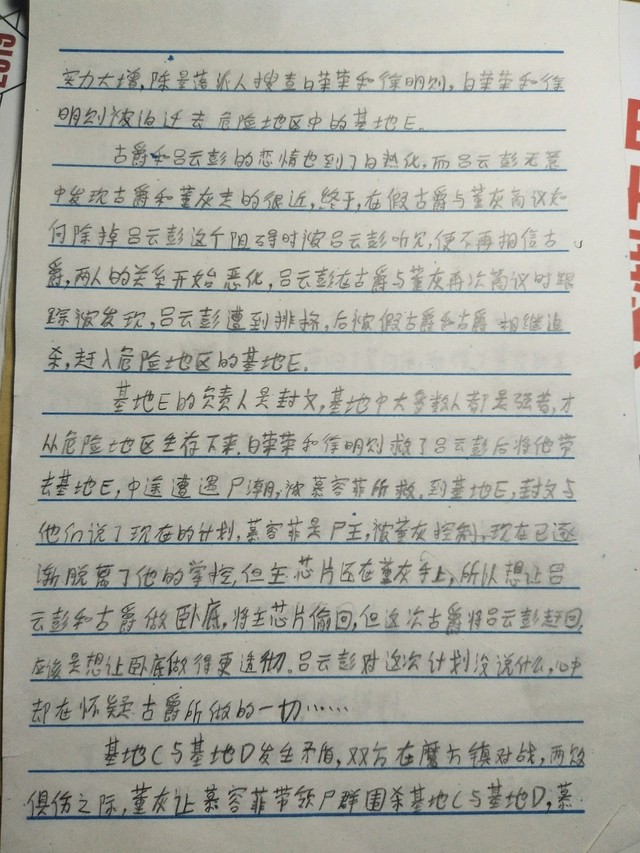 实力大增,陈星落派人搜查白苹苹和徐明则,白苹苹和徐
明则被迫迁去危险地区中的基地E。
古爵和吕云彭的恋情也到了白热化,而吕云彭无意
中发现古爵和董灰走的很近,终于,在假古爵与董灰商议如
何除掉吕云彭这个阻碍时被吕云彭听见,便不再相信古
爵,两人的关系开始恶化,吕云彭在古爵与董灰再次商议时跟
踪被发现,吕云彭遭到排挤,后被假古爵和古爵相继追
杀,赶入危险地区的基地E。
基地E的负责人是封文,基地中大多数人都是强者,才
从危险地区生存下来,白苹苹和徐明则救了吕云彭后将他带
去基地E,中途遭遇尸潮,被慕容菲所救,到基地E,封文与
他们说了现在的计划,慕容菲是尸王,被董灰控制,现在已逐
渐脱离了他的掌控,但主芯片还在董灰手上,所以想让吕
云彭和古爵做卧底,将主芯片偷回,但这次古爵将吕云彭赶回,
应该是想让卧底做得更透彻。吕云彭对这次计划没说什么,心中
却在怀疑古爵所做的一切……
基地C与基地D发生矛盾,双方在魔方镇对战,两败
俱伤之际,董灰让慕容菲带领尸群围杀基地C与基地D,慕
2019